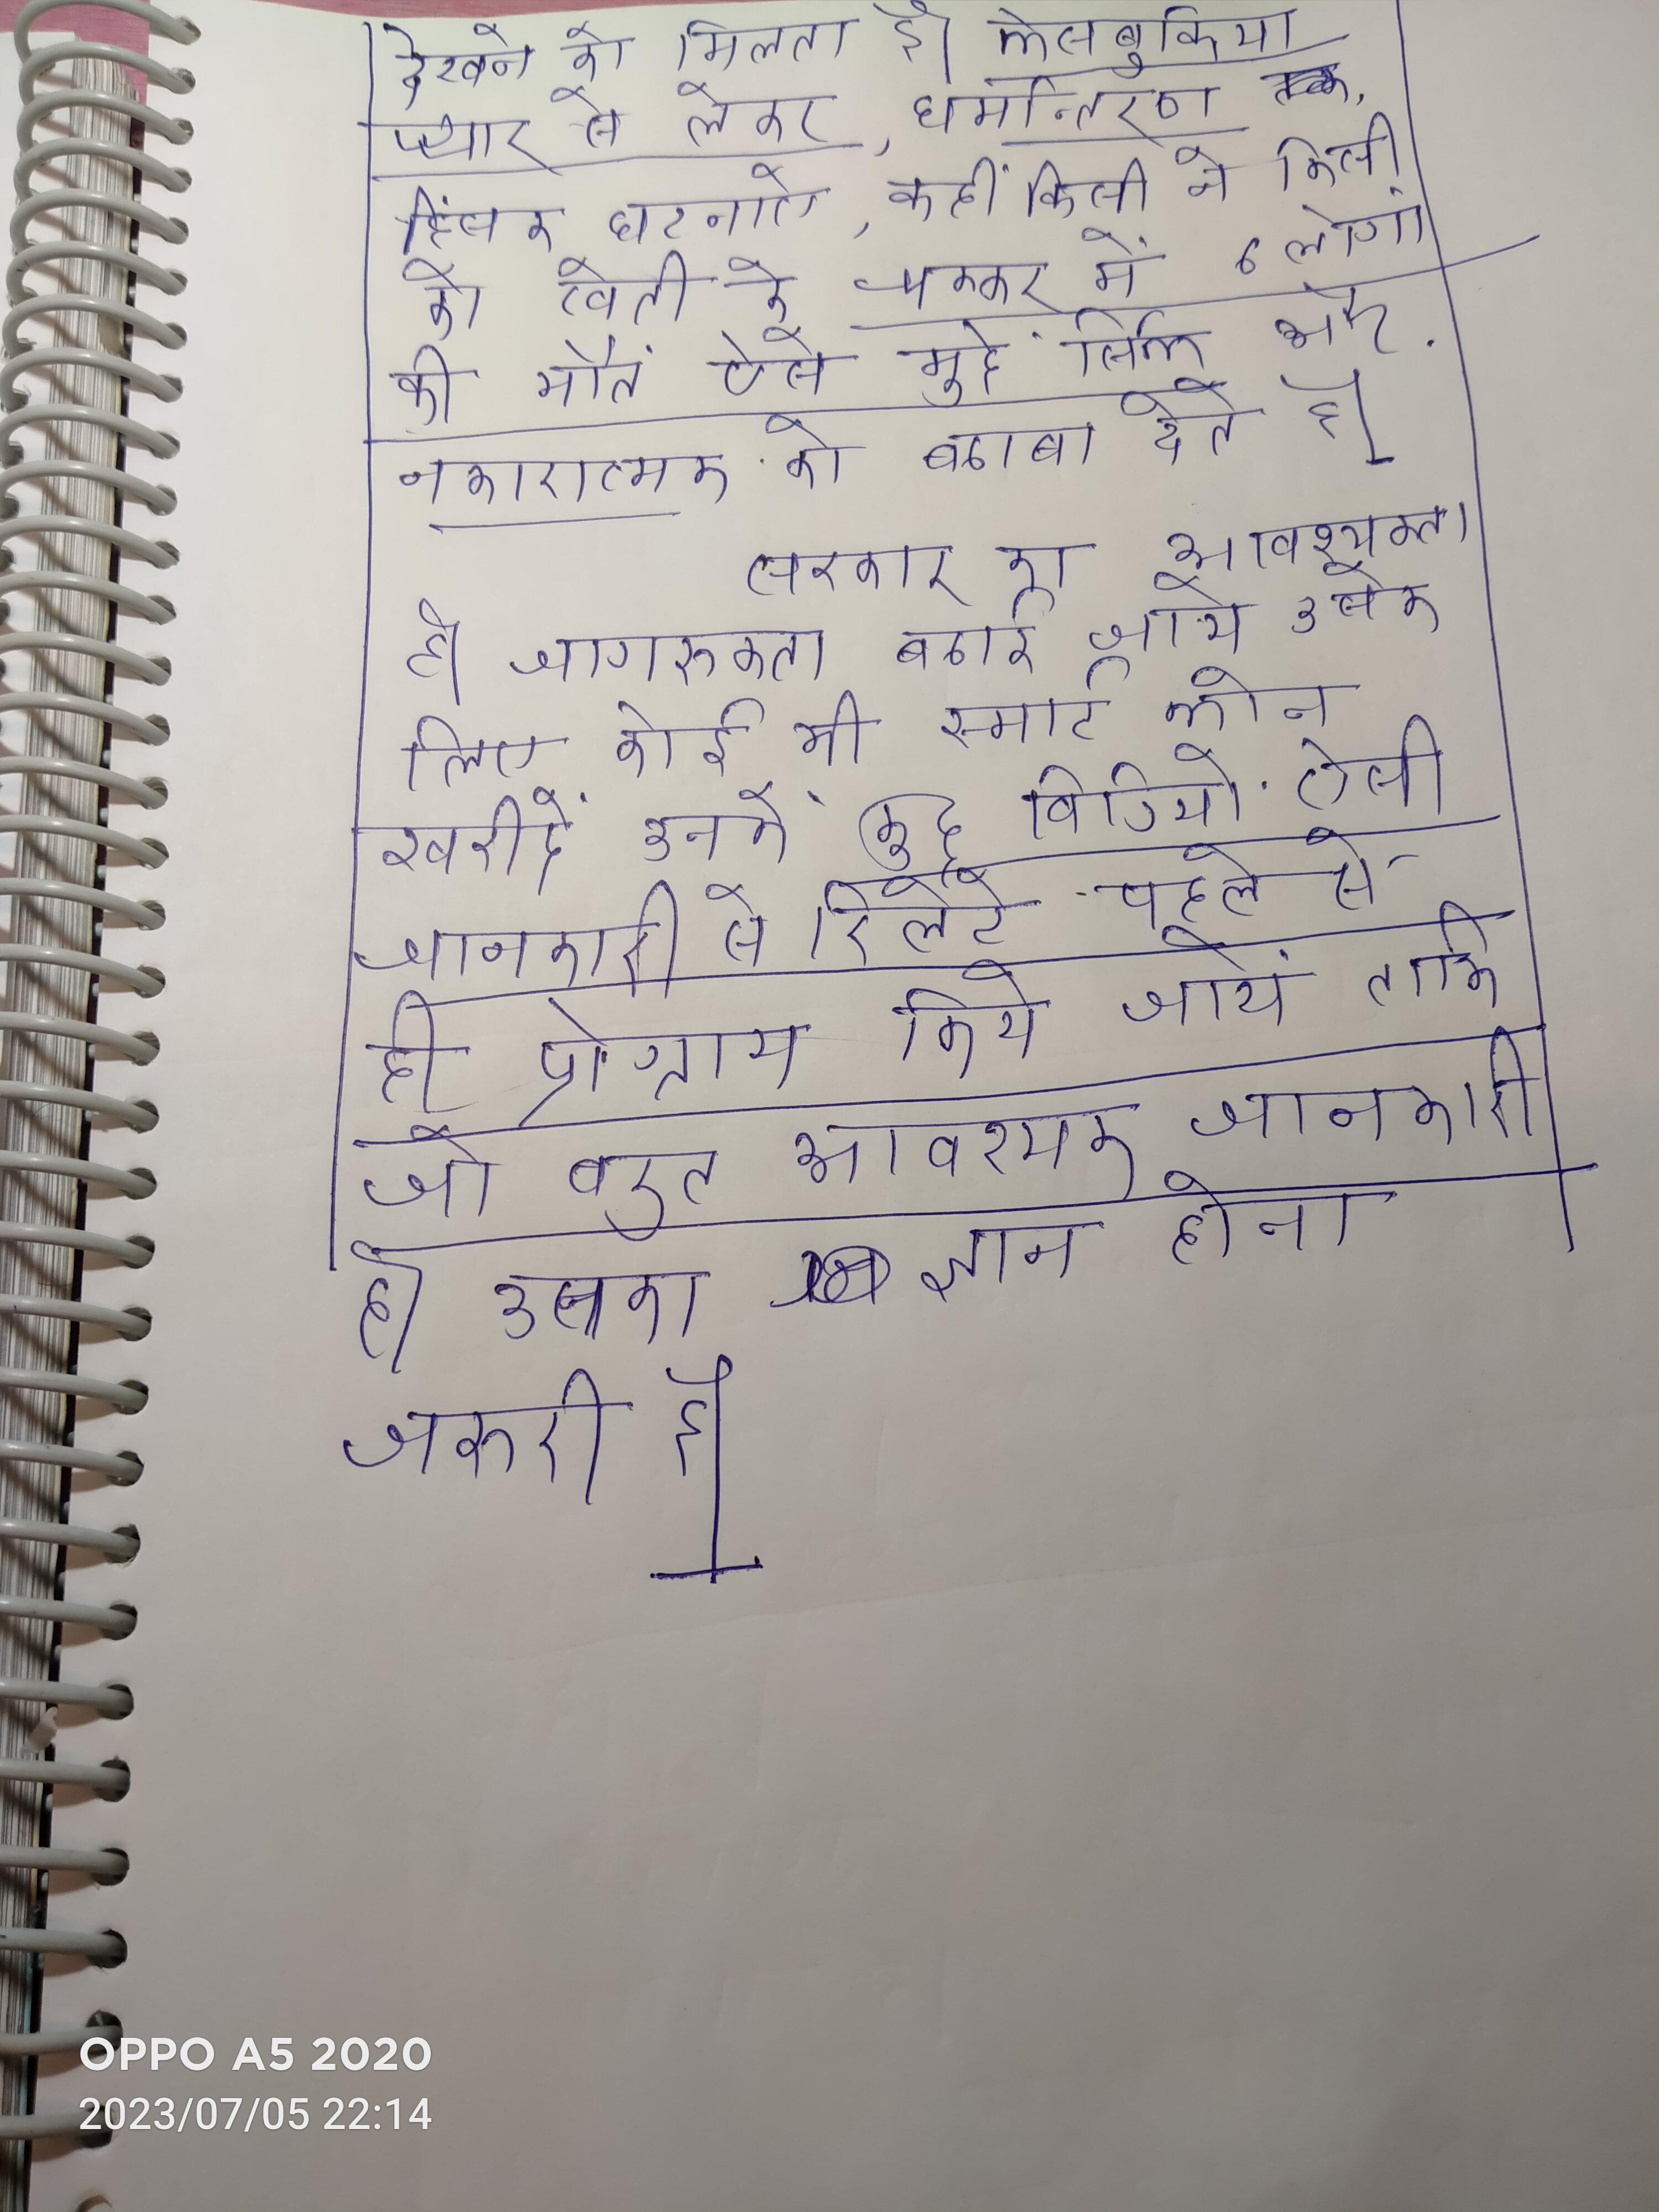 देखने को मिलता है। फेसबुकिया
प्यार से लेकर, धर्मान्तरण तक,
हिंसक घटनाऐ, कहीं किसी ने किसी
को खेती के चक्कर में 6 लोगों
की मौतं ऐसे मुद्दे सिर्फ और.
नकारात्मक को बढाबा देते है।
सरकार का आवश्यक्ता
है। जागरुकता बढाई जाये उसके
लिए कोई भी स्मार्ट फोन
खरीदें उनमें कुछ विडियो ऐसी
जानकारी से रिलेटे पहले से
ही प्रोग्राम किये जायें ताकि
जो बहुत आवश्यक जानकारी
है। उसका ज्ञान होना
जरूरी है।
OPPO A5 2020
2023/07/05 22:14